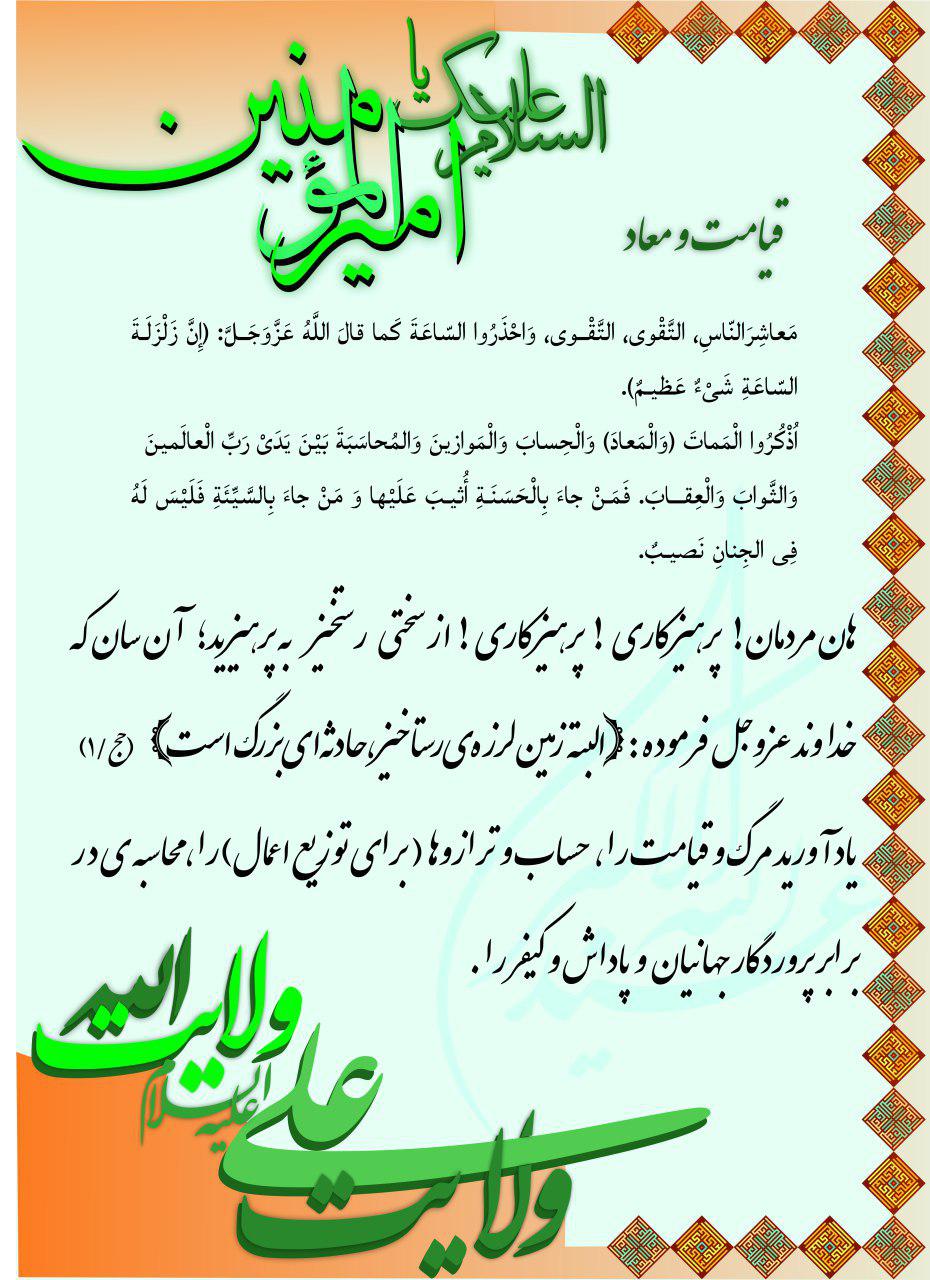 السلام علیک یا
امیرالمؤمنین
قیامت و معاد
مَعاشِرَالنّاسِ، التَّقْوی، التَّقْـوی، وَاحْذَرُوا السّاعَةَ کَما قالَ اللَّهُ عَزَّوَجَـلَّ: (إِنَّ زَلْزَلَـةَ
السّاعَةِ شَیْءٌ عَظیـمٌ).
اُذْکُرُوا الْمَماتَ (وَالْمَعادَ) وَالْحِسابَ وَالْمَوازینَ وَالمُحاسَبَةَ بَیْنَ یَدَیْ رَبِّ الْعالَمینَ
وَالثَّوابَ وَالْعِقـابَ. فَمَـنْ جاءَ بِالْحَسَنَـةِ أُثیـبَ عَلَیْها وَ مَنْ جاءَ بِالسَّیِّئَةِ فَلَیْسَ لَهُ
فِی الجِنانِ نَصیـبٌ.
هان مردمان! پرهیزکاری! پرهیزکاری! از سختی رستخیز به پرهیزید؛ آن سان که
خداوند عزوجل فرموده: ﴿البته زمین لرزه ی رستاخیز، حادثه ای بزرگ است﴾ (حج/۱)
یاد آورید مرگ و قیامت را، حساب و ترازوها (برای توزیع اعمال) را، محاسبه ی در
برابر پروردگار جهانیان و پاداش و کیفر را.
ولایت الله
ولایت علی علیه السلام